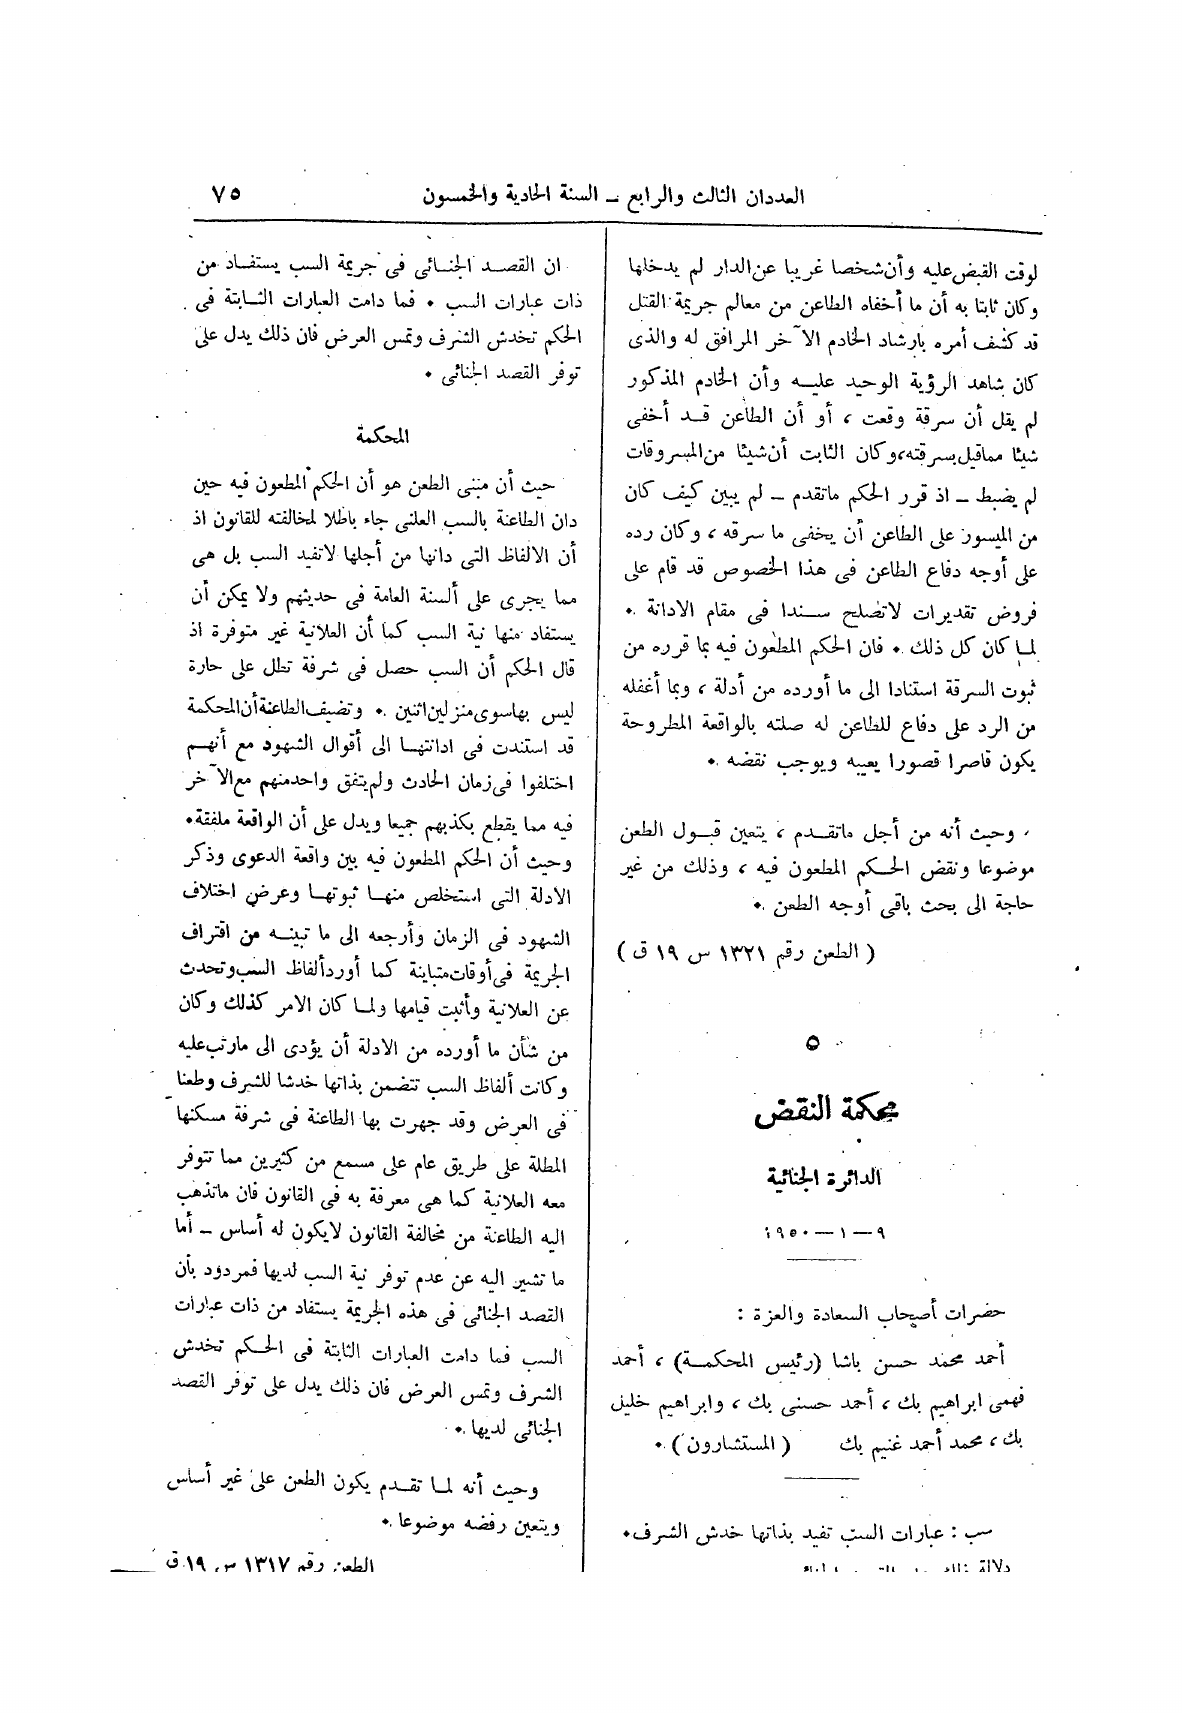 العددان الثالث والرابع ــ السنة الحادية والخمسون ٧٥
لوقت القبض عليه وأن شخصا غريبا عن الدار لم يدخلها
وكان ثابتا به أن ما أخفاه الطاعن من معالم جريمة القتل
قد كشف أمره بارشاد الخادم الآخر المرافق له والذى
كان شاهد الرؤية الوحيد عليــه وأن الخادم المذكور
لم يقل أن سرقة وقعت ، أو أن الطاعن قــد أخفى
شيئا مما قيل بسرقته، وكان الثابت أن شيئا من المسروقات
لم يضبط ــ اذ قرر الحكم ماتقدم ــ لم يبين كيف كان
من الميسور على الطاعن أن يخفى ما سرقه ، وكان رده
على أوجه دفاع الطاعن فى هذا الخصوص قد قام على
فروض تقديرات لاتصلح ســندا فى مقام الادانة .
لمــا كان كل ذلك . فان الحكم المطعون فيه بما قرره من
ثبوت السرقة استنادا الى ما أورده من أدلة ، وبما أغفله
من الرد على دفاع للطاعن له صلته بالواقعة المطروحة
يكون قاصرا قصورا يعيبه ويوجب نقضه .
وحيث أنه من أجل ماتقــدم ، يتعين قبــول الطعن
موضوعا ونقض الحــكم المطعون فيه ، وذلك من غير
حاجة الى بحث باقى أوجه الطعن .
( الطعن رقم ١٣٢١ س ١٩ ق )
٥
محكمة النقض
الدائرة الجنائية
٩ — ١ — ١٩٥٠
حضرات أصحاب السعادة والعزة :
أحمد محمد حسن باشا (رئيس المحكمــة) ، أحمد
فهمى ابراهيم بك ، أحمد حسنى بك ، وابراهيم خليل
بك ، محمد أحمد غنيم بك ( المستشارون ) .
سب : عبارات السب تفيد بذاتها خدش الشرف .
دلالة ذلك
ان القصــد الجنــائى فى جريمة السب يستفــاد من
ذات عبارات السب . فما دامت العبارات الثــابتة فى
الحكم تخدش الشرف وتمس العرض فان ذلك يدل على
توفر القصد الجنائى .
المحكمة
حيث أن مبنى الطعن هو أن الحكم المطعون فيه حين
دان الطاعنة بالسب العلنى جاء باطلا لمخالفته للقانون اذ
أن الالفاظ التى دانها من أجلها لاتفيد السب بل هى
مما يجرى على ألسنة العامة فى حديثهم ولا يمكن أن
يستفاد منها نية السب كما أن العلانية غير متوفرة اذ
قال الحكم أن السب حصل فى شرفة تطل على حارة
ليس بها سوى منزلين اثنين . وتضيف الطاعنة أن المحكمة
قد استندت فى ادانتهــا الى أقوال الشهود مع أنهــم
اختلفوا فى زمان الحادث ولم يتفق واحد منهم مع الآخر
فيه مما يقطع بكذبهم جميعا ويدل على أن الواقعة ملفقة .
وحيث أن الحكم المطعون فيه بين واقعة الدعوى وذكر
الادلة التى استخلص منهــا ثبوتهــا وعرض اختلاف
الشهود فى الزمان وأرجعه الى ما تبينــه من اقتراف
الجريمة فى أوقات متباينة كما أورد ألفاظ السب وتحدث
عن العلانية وأثبت قيامها ولمــا كان الامر كذلك وكان
من شأن ما أورده من الادلة أن يؤدى الى مارتب عليه
وكانت ألفاظ السب تتضمن بذاتها خدشا للشرف وطعنا
فى العرض وقد جهرت بها الطاعنة فى شرفة مسكنها
المطلة على طريق عام على مسمع من كثيرين مما تتوفر
معه العلانية كما هى معرفة به فى القانون فان ماتذهب
اليه الطاعنة من مخالفة القانون لايكون له أساس ــ أما
ما تشير اليه عن عدم توفر نية السب لديها فمردود بأن
القصد الجنائى فى هذه الجريمة يستفاد من ذات عبارات
السب فما دامت العبارات الثابتة فى الحــكم تخدش
الشرف وتمس العرض فان ذلك يدل على توفر القصد
الجنائى لديها .
وحيث أنه لمــا تقــدم يكون الطعن على غير أساس
ويتعين رفضه موضوعا .
الطعن رقم ١٣١٧ س ١٩ ق